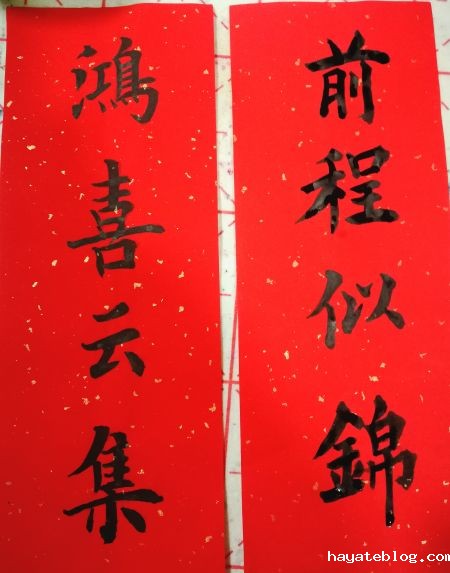 前程似錦
鴻喜云集
hayateblog.com